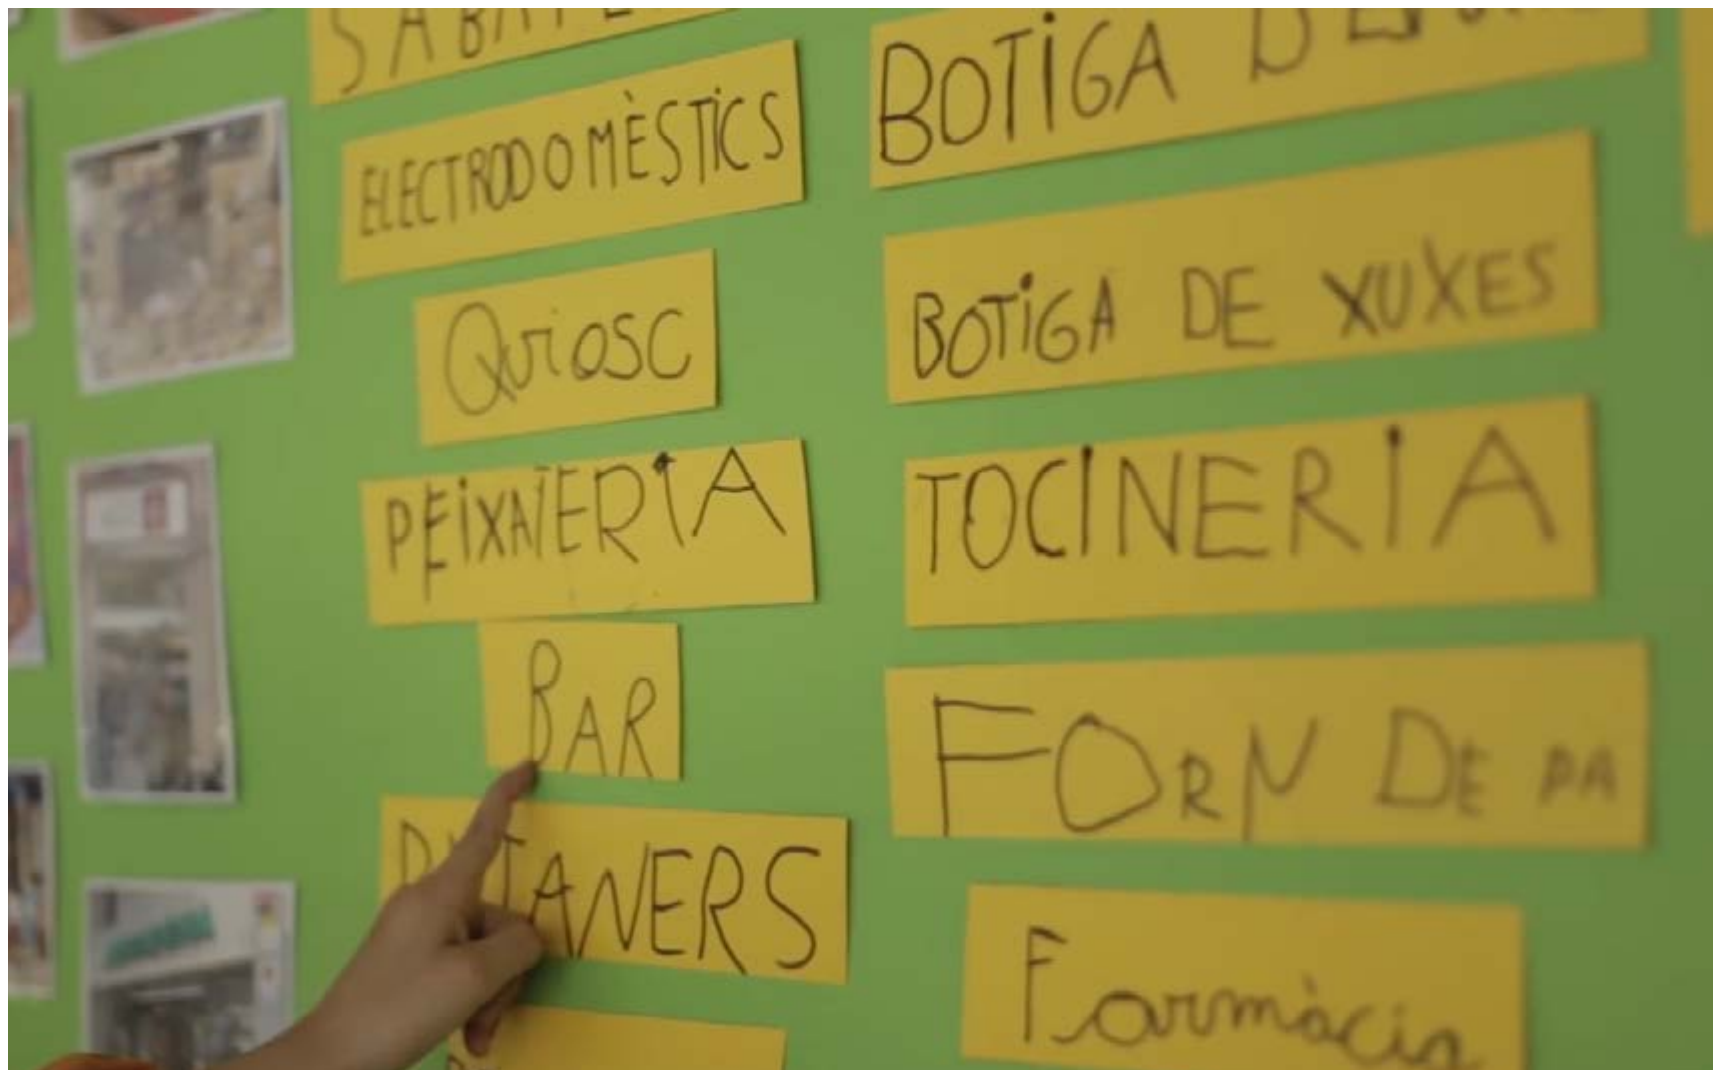 ELECTRODOMÈSTICS
QUIOSC
PEIXATERIA
BAR
BOTIGA
BOTIGA DE XUXES
TOCINERIA
FORN DE PA
Farmàcia